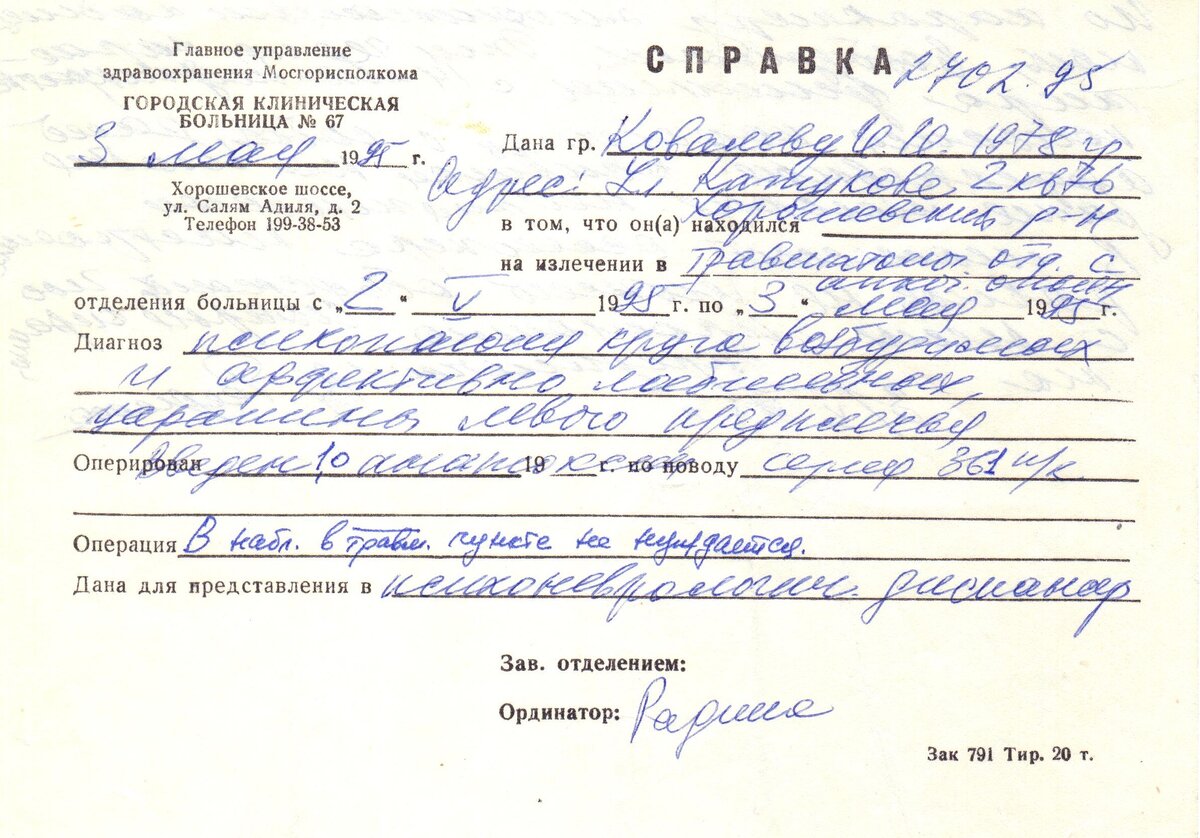 Главное управление
здравоохранения Мосгорисполкома
ГОРОДСКАЯ КЛИНИЧЕСКАЯ
БОЛЬНИЦА № 67
3 мая 1995 г.
Хорошевское шоссе,
ул. Салям Адиля, д. 2
Телефон 199-38-53
СПРАВКА 2702.95
Дана гр. Ковалеву Ю. Ю. 1978 гр
Адрес: Ул. 2 кв 76
Хорошевский р-н
в том, что он(а) находился
на излечении в травматолог. отд. с
отделения больницы с „2“ V 1995 г. по „3“ мая 1995 г.
Диагноз психопатия круга возбудимых
и аффективно лабильных,
царапины левого предплечья
Оперирован Введен 1,0 анатоксин 19 г. по поводу серия 361 п/к
Операция В набл. в травм. пункте не нуждается.
Дана для представления в психоневрологич. диспансер
Зав. отделением:
Ординатор: Радина
Зак 791 Тир. 20 т.